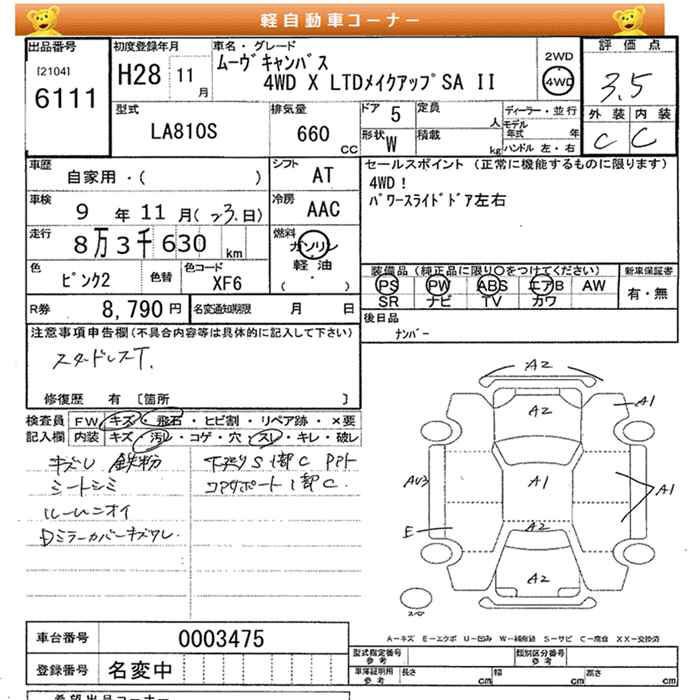 軽自動車コーナー
出品番号
[2104]
6111
初度登録年月
H28 11 月
車名・グレード
ムーヴキャンバス
4WD X LTDメイクアップSA II
2WD
4WD
評価点
3.5
外装 内装
C C
型式
LA810S
排気量
660 CC
ドア 5
定員 人
形状 W
積載 kg
ディーラー・並行
モデル年式 年
ハンドル 左・右
車歴
自家用・( )
シフト AT
車検
9 年 11 月(23日)
冷房 AAC
走行
8万3千630 km
燃料
ガソリン
・
軽油
( ・ )
色
ピンク2
色替
色コード
XF6
R券 8,790 円
名変通知期限 月 日
セールスポイント (正常に機能するものに限ります)
4WD!
パワースライドドア左右
装備品(純正品に限り○をつけてください)
PS PW ABS エアB AW
SR ナビ TV カワ
新車保証書
有・無
後日品
ナンバー
注意事項申告欄(不具合内容等は具体的に記入して下さい)
スタッドレスT.
修復歴 有 [箇所 ]
検査員記入欄
FW キズ・飛石・ヒビ割・リペア跡・×要
内装 キズ・汚レ・コゲ・穴・スレ・キレ・破レ
キズレ 鉄粉
シートシミ
ルームニオイ
Dミラーカバーキズワレ
下廻りS 1部C
コアサポート1部C.
A2
A2
A1
AU3
A1
A1
E
A2
A2
スペア
A-キズ E-エクボ U-凹み W-補修跡 S-サビ C-腐食 XX-交換済
車台番号 0003475
登録番号 名変中
型式指定番号
参考
類別区分番号
参考
車庫証明用
参考
長さ cm 幅 cm 高さ cm
希望出品コーナー